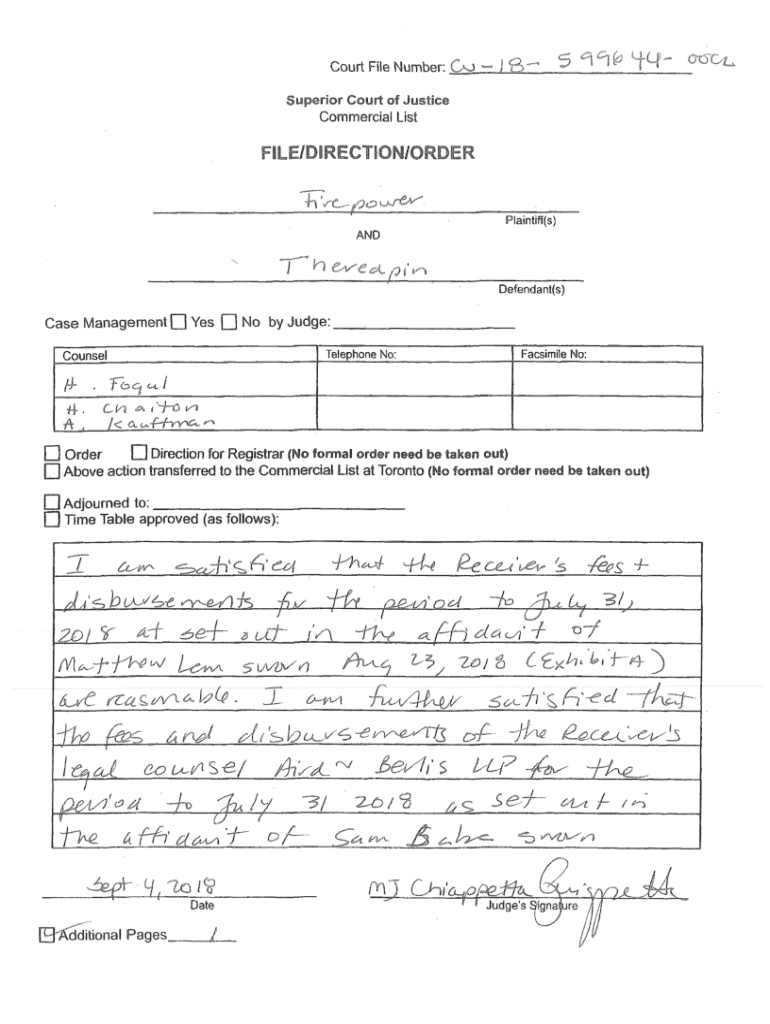 Court File Number: CV-18-599644-00CL
Superior Court of Justice
Commercial List
FILE/DIRECTION/ORDER
Firepower
Plaintiff(s)
AND
Theredpin
Defendant(s)
Case Management Yes No by Judge:
Counsel Telephone No: Facsimile No:
H. Fogul
H. Chaiton
A. Kauffman
Order Direction for Registrar (No formal order need be taken out)
Above action transferred to the Commercial List at Toronto (No formal order need be taken out)
Adjourned to:
Time Table approved (as follows):
I am satisfied that the Receiver's fees +
disbursements for the period to July 31,
2018 at set out in the affidavit of
Matthew Lem sworn Aug 23, 2018 (Exhibit A)
are reasonable. I am further satisfied that
the fees and disbursements of the Receiver's
legal counsel Aird ~ Berlis LLP for the
period to July 31 2018 as set out in
the affidavit of Sam Babe sworn
Sept 4, 2018 MJ Chiappetta
Date Judge's Signature
Additional Pages 1